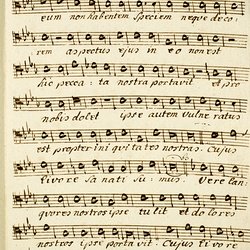 eum non habentem speciem neque deco
rem aspectus ejus in eo non est
hic pecca ta nostra portavit et pro
nobis dolet ipse autem Vulne ratus
est propter ini qui ta tes nostras. Cujus
livore sa nati su mus Vere lan
quores nostros ipse tu lit et do lores
nostros ipse porta vit. Cujus li vo